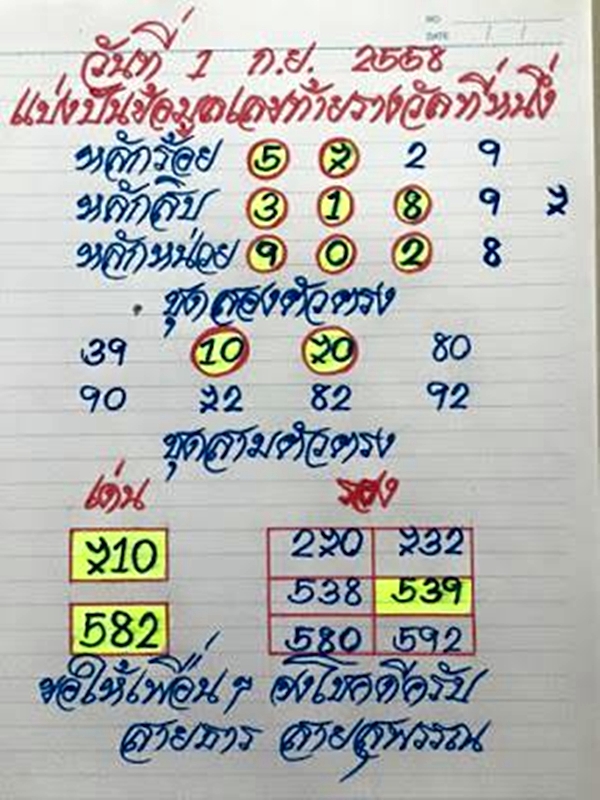 NO
DATE / /
วันที่ 1 ก.ย. 2558
แบ่งปันข้อมูลเลขท้ายรางวัลที่หนึ่ง
หลักร้อย 5 7 2 9
หลักสิบ 3 1 8 9 7
หลักหน่วย 9 0 2 8
ชุดสองตัวตรง
39 10 70 80
90 72 82 92
ชุดสามตัวตรง
เด่น รอง
710 270 732
538 539
582 580 592
ขอให้เพื่อนๆ จงโชคดีครับ
สายธาร สายสุพรรณ